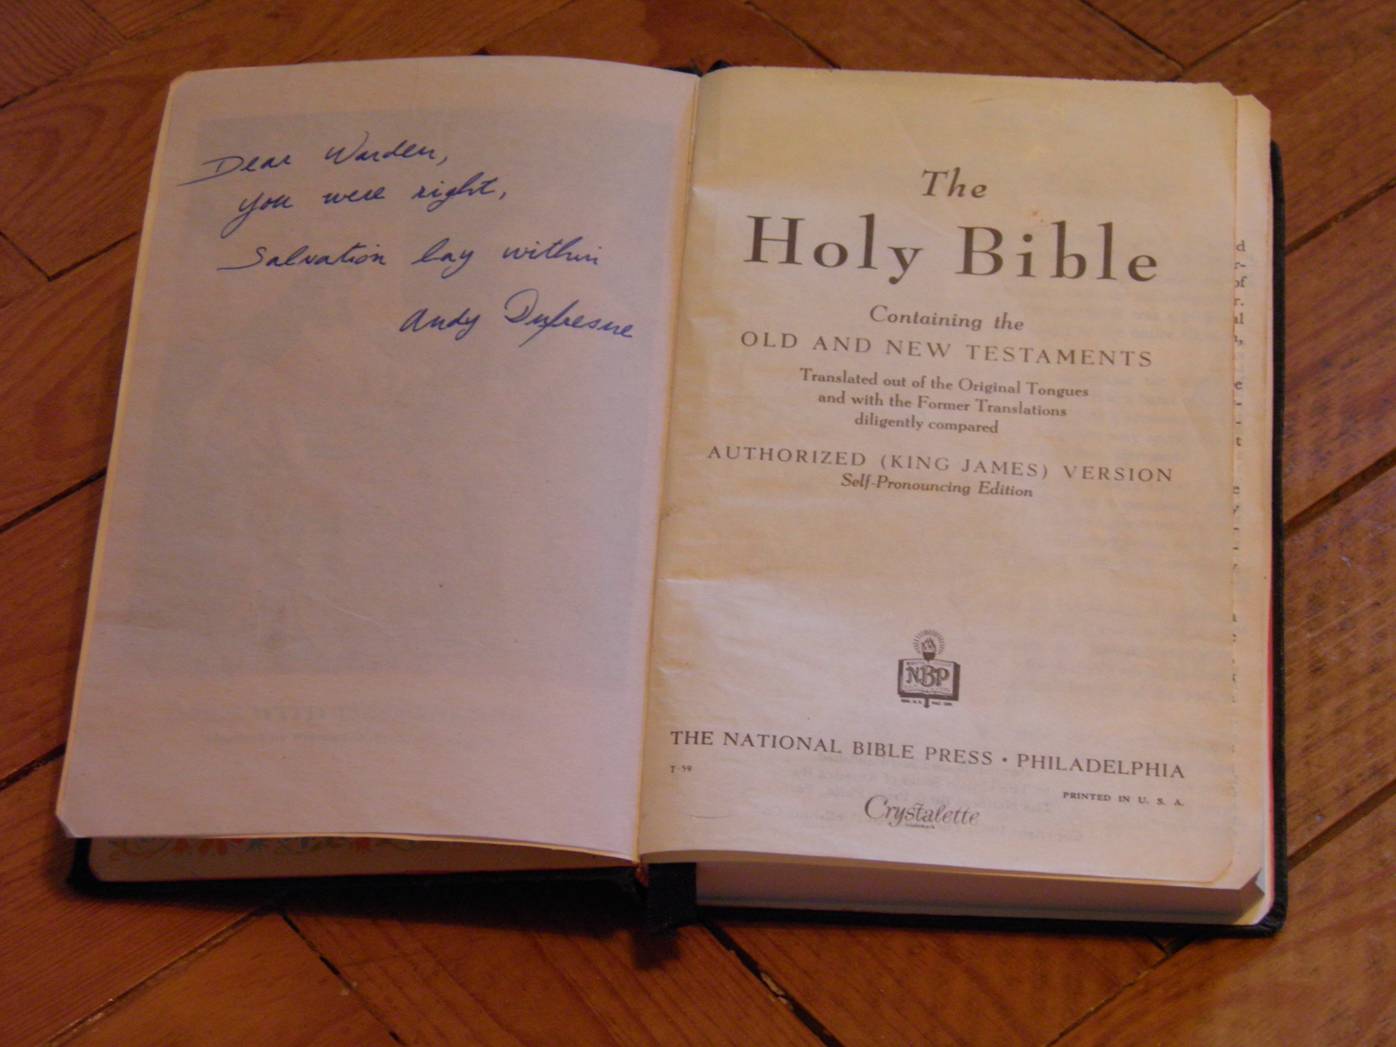 Dear Warden,
you were right,
Salvation lay within
Andy Dufresne
The
Holy Bible
Containing the
OLD AND NEW TESTAMENTS
Translated out of the Original Tongues
and with the Former Translations
diligently compared
AUTHORIZED (KING JAMES) VERSION
Self-Pronouncing Edition
NBP
THE NATIONAL BIBLE PRESS · PHILADELPHIA
T-59
PRINTED IN U. S. A.
Crystalette